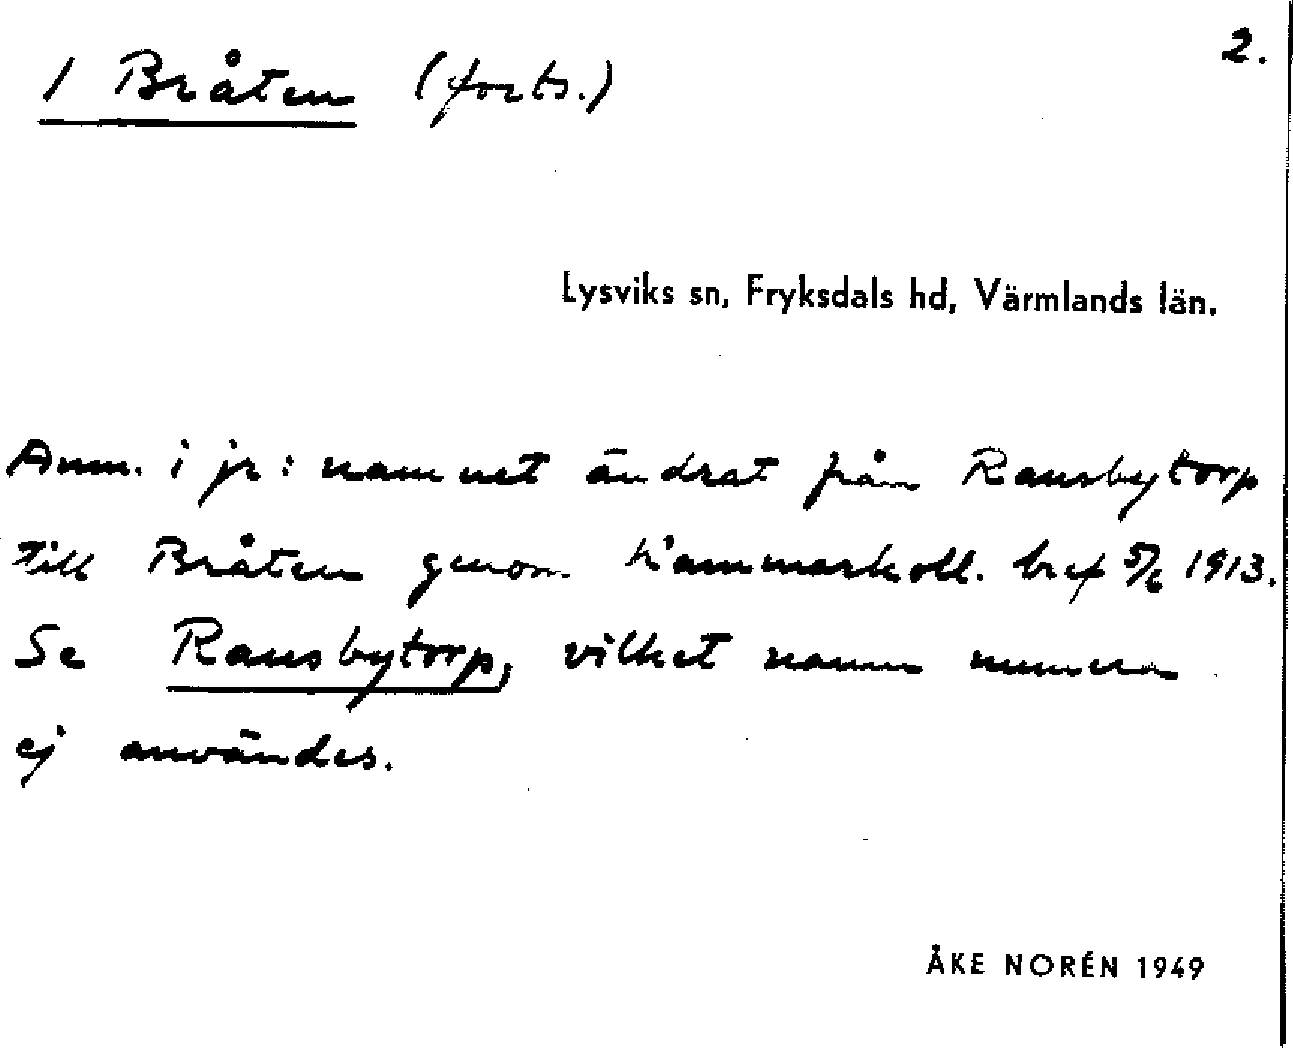 2.
1 Bråten (forts.)
Lysviks sn, Fryksdals hd, Värmlands län.
Anm. i jr: namnet ändrat från Ransbytorp
till Bråten genom Kammarkoll. bref 5/6 1913.
Se Ransbytorp, vilket namn numera
ej användes.
ÅKE NORÉN 1949